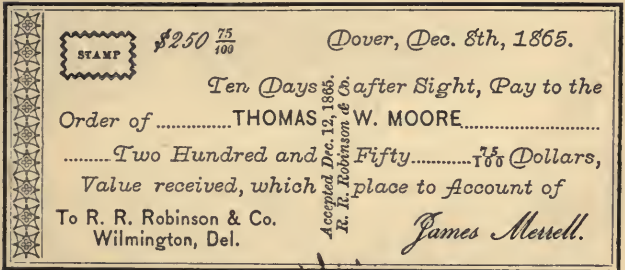 STAMP
$250 75/100
Dover, Dec. 8th, 1865.
Ten Days after Sight, Pay to the
Order of ............THOMAS W. MOORE......................
.........Two Hundred and Fifty......... 75/100 Dollars,
Value received, which place to Account of
To R. R. Robinson & Co.
Wilmington, Del.
James Merrell.
Accepted Dec. 12, 1865.
R. R. Robinson & Co.